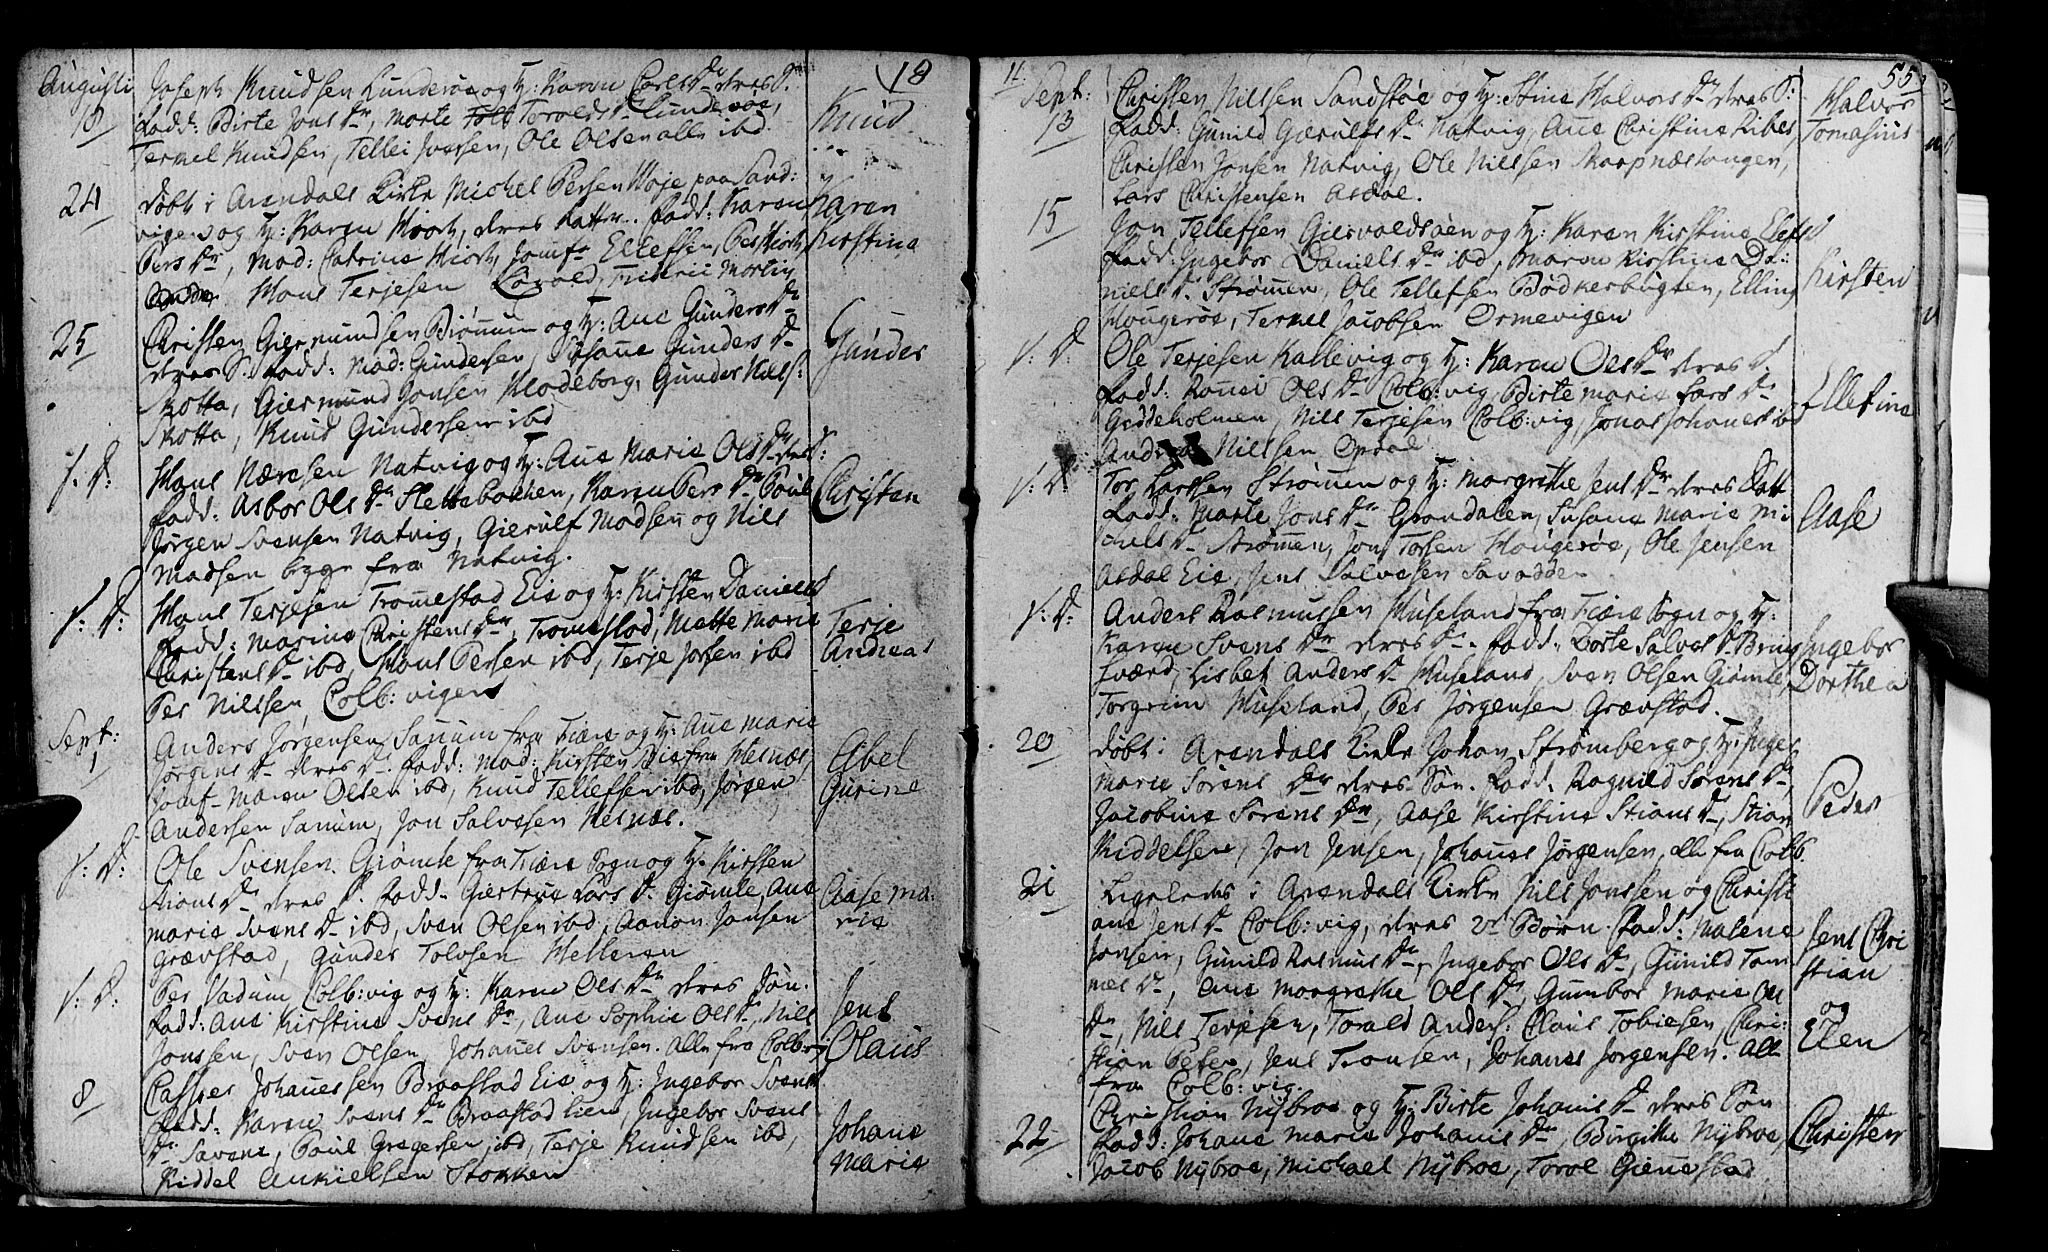 Augusti
18
Joseph Knudsen Lunderøe og H: Karen Carls Dr deres S.
Fadd: Birte Jons Dr, Marte Torvolds Dr Lunderøe,
Terkel Knudsen, Tellef Iversen, Ole Olsen alle ibd.
Knud
18
24
Døbt i Arendals Kirke Michel Persen Høje paa Sand:
vigen og H: Karen Hiort, deres Datter. Fadd: Karen
Pers Dr, Mad: Catrine Hiort, Jomf. Ellefsen, Per Hiort,
Hans Terjesen Frideric Mortin
Karen
Kirstina
25
Christen Giermundsen Brønnum og H: Ane Gunders Dr
deres S. Fadd: Mad: Gundersen, Susane Gunders Dr
Skotta, Giermund Jonsen Klodeborg, Gunder Nils:
Skotta, Knud Gundersen ibd
Gunder
S: D:
Hans Næresen Natvig og H: Ane Marie Ols Dr deres S:
Fadd: Asbor Ols Dr Slettebakken, Karen Pers Dr
Jørgen Svensen Natvig, Gierulf Madsen og Nils
Madsen begge fra Natvig.
Christen
S: D:
Hans Terjesen Tromestad Eie og H: Kirsten Daniels
Fadd: Marine Christens Dr, Tromestad, Mette Marie
Christens Dr ibd, Hans Persen ibd, Terje Jorsen ibd
Per Nilssen, Colb:vigen
Terje
Andreas
Sept:
1
Anders Jørgensen Sanum fra Fiære og H: Ane Marie
Jørgens Dr deres Dr. Fadd: Mad: Kirsten fra Hesnæs,
Jomf. Maren Olsen ibd, Knud Tellefsen ibd, Jørgen
Andersen Sanum, Jon Salvesen Hesnæs.
Abel
Gurine
S: D:
Ole Svensen Giømle fra Fiære Sogn og H: Kirsten
Stians Dr deres D. Fadd. Giertrue Lars Dr Giømle, Ane
Marie Svens Dr ibd, Sven Olsen ibd, Aanon Jonsen
Grævstad, Gunder Tolvsen Melleren
Aase Ma:
rie
S: D:
Per Vadum, Colb:vig og H: Karen Ols Dr deres Søn.
Fadd: Ane Kirstine Svens Dr, Ane Sophie Ols Dr, Nils
Jonssen, Sven Olsen, Johanes Svensen. Alle fra Colb:vig
Jens
Olaus
8
Casper Johanessen Braastad Eie og H: Ingebor Svens
Fadd: Karen Svens Dr Braastad lien, Ingebor Svens
Dr Savene, Poul Gregersen, ibd, Terje Knudsen ibd,
Kiddel Aukielsen Stokken
Johane
Marie
11.
Sept:
13
Christen Nilssen Sandstøe og H: Stine Halvors Dr deres S:
Fadd: Gunild Gierulfs Dr Natvig, Ane Christine Ribes,
Christen Jonsen Natvig, Ole Nilssen Skarpnæstangen,
Lars Christensen Asdal.
55
Halvor
Tomasius
15
Jon Tellefsen Giervoldsøen og H: Karen Kirstine Elefs
Fadd: Ingebor Daniels Dr ibd, Maren Kirstine Da:
niels Dr Strømmen, Ole Tellefsen Bødkerbugten, Elling
Hougerøe, Terkel Jacobsen Ormevigen
Kirsten
S: D:
Ole Terjesen Kallevig og H: Karen Ols Dr deres D.
Fadd: Ronnei Ols Dr Colb:vig, Birte Marie Lars Dr
Gieddeholmen, Nils Terjesen Colb:vig, Jonas Johanes ibd
Nilssen
Ellefine
S: D:
Tor Larssen Strømmen og H: Margrethe Jens Dr deres Datt
Fadd: Marte Jons Dr Grøndalen, Susane Marie Mi
chels Dr Strømmen, Jon Torsen Hougerøe, Ole Jensen
Asdal Eie, Jens Salvesen
Aase
S: D:
Anders Rasmussen Museland fra Fiære Sogn og H:
Karen Svens Dr deres Dr. Fadd: Dorte Salves Dr Bring
sværd, Lisbet Anders Dr Museland, Sven Olsen Giømle,
Torgrim Museland, Per Jørgensen Grævstad.
Ingebor
Dorthea
20
Døbt i Arendals Kirke Johan Strømberg og H: Inger
Marie Sørens Dr deres Søn. Fadd. Ragnild Sørens Dr,
Jacobine Sørens Dr, Aase Kirstine Stians Dr, Stian
Kiddelsen, Jon Jensen, Johanes Jørgensen, alle fra Colb.
Peder
21
Ligeledes i Arendals Kirke Nils Jonssen og Christi
ane Jens Dr Colb:vig, deres 2de Børn. Fadd: Malene
Jonsen, Gunild Rasmus Dr, Ingebor Ols Dr, Gunild Tom
mes Dr, Ane Margrethe Ols Dr, Gunbor Marie Ols
Dr, Nils Terjesen, Torald Anders. Claus Tobiesen, Chri:
stian Peter, Jens Tronsen, Johanes Jørgensen. Alle
fra Colb:vig.
Jens Chri
stian
og
Elen
22
Christian Nybroe og H: Birte Johanis Dr deres Søn
Fadd: Johane Marie Johanis Dr, Birgithe Nybroe,
Jacob Nybroe, Michael Nybroe, Torol Gienestad
Christen